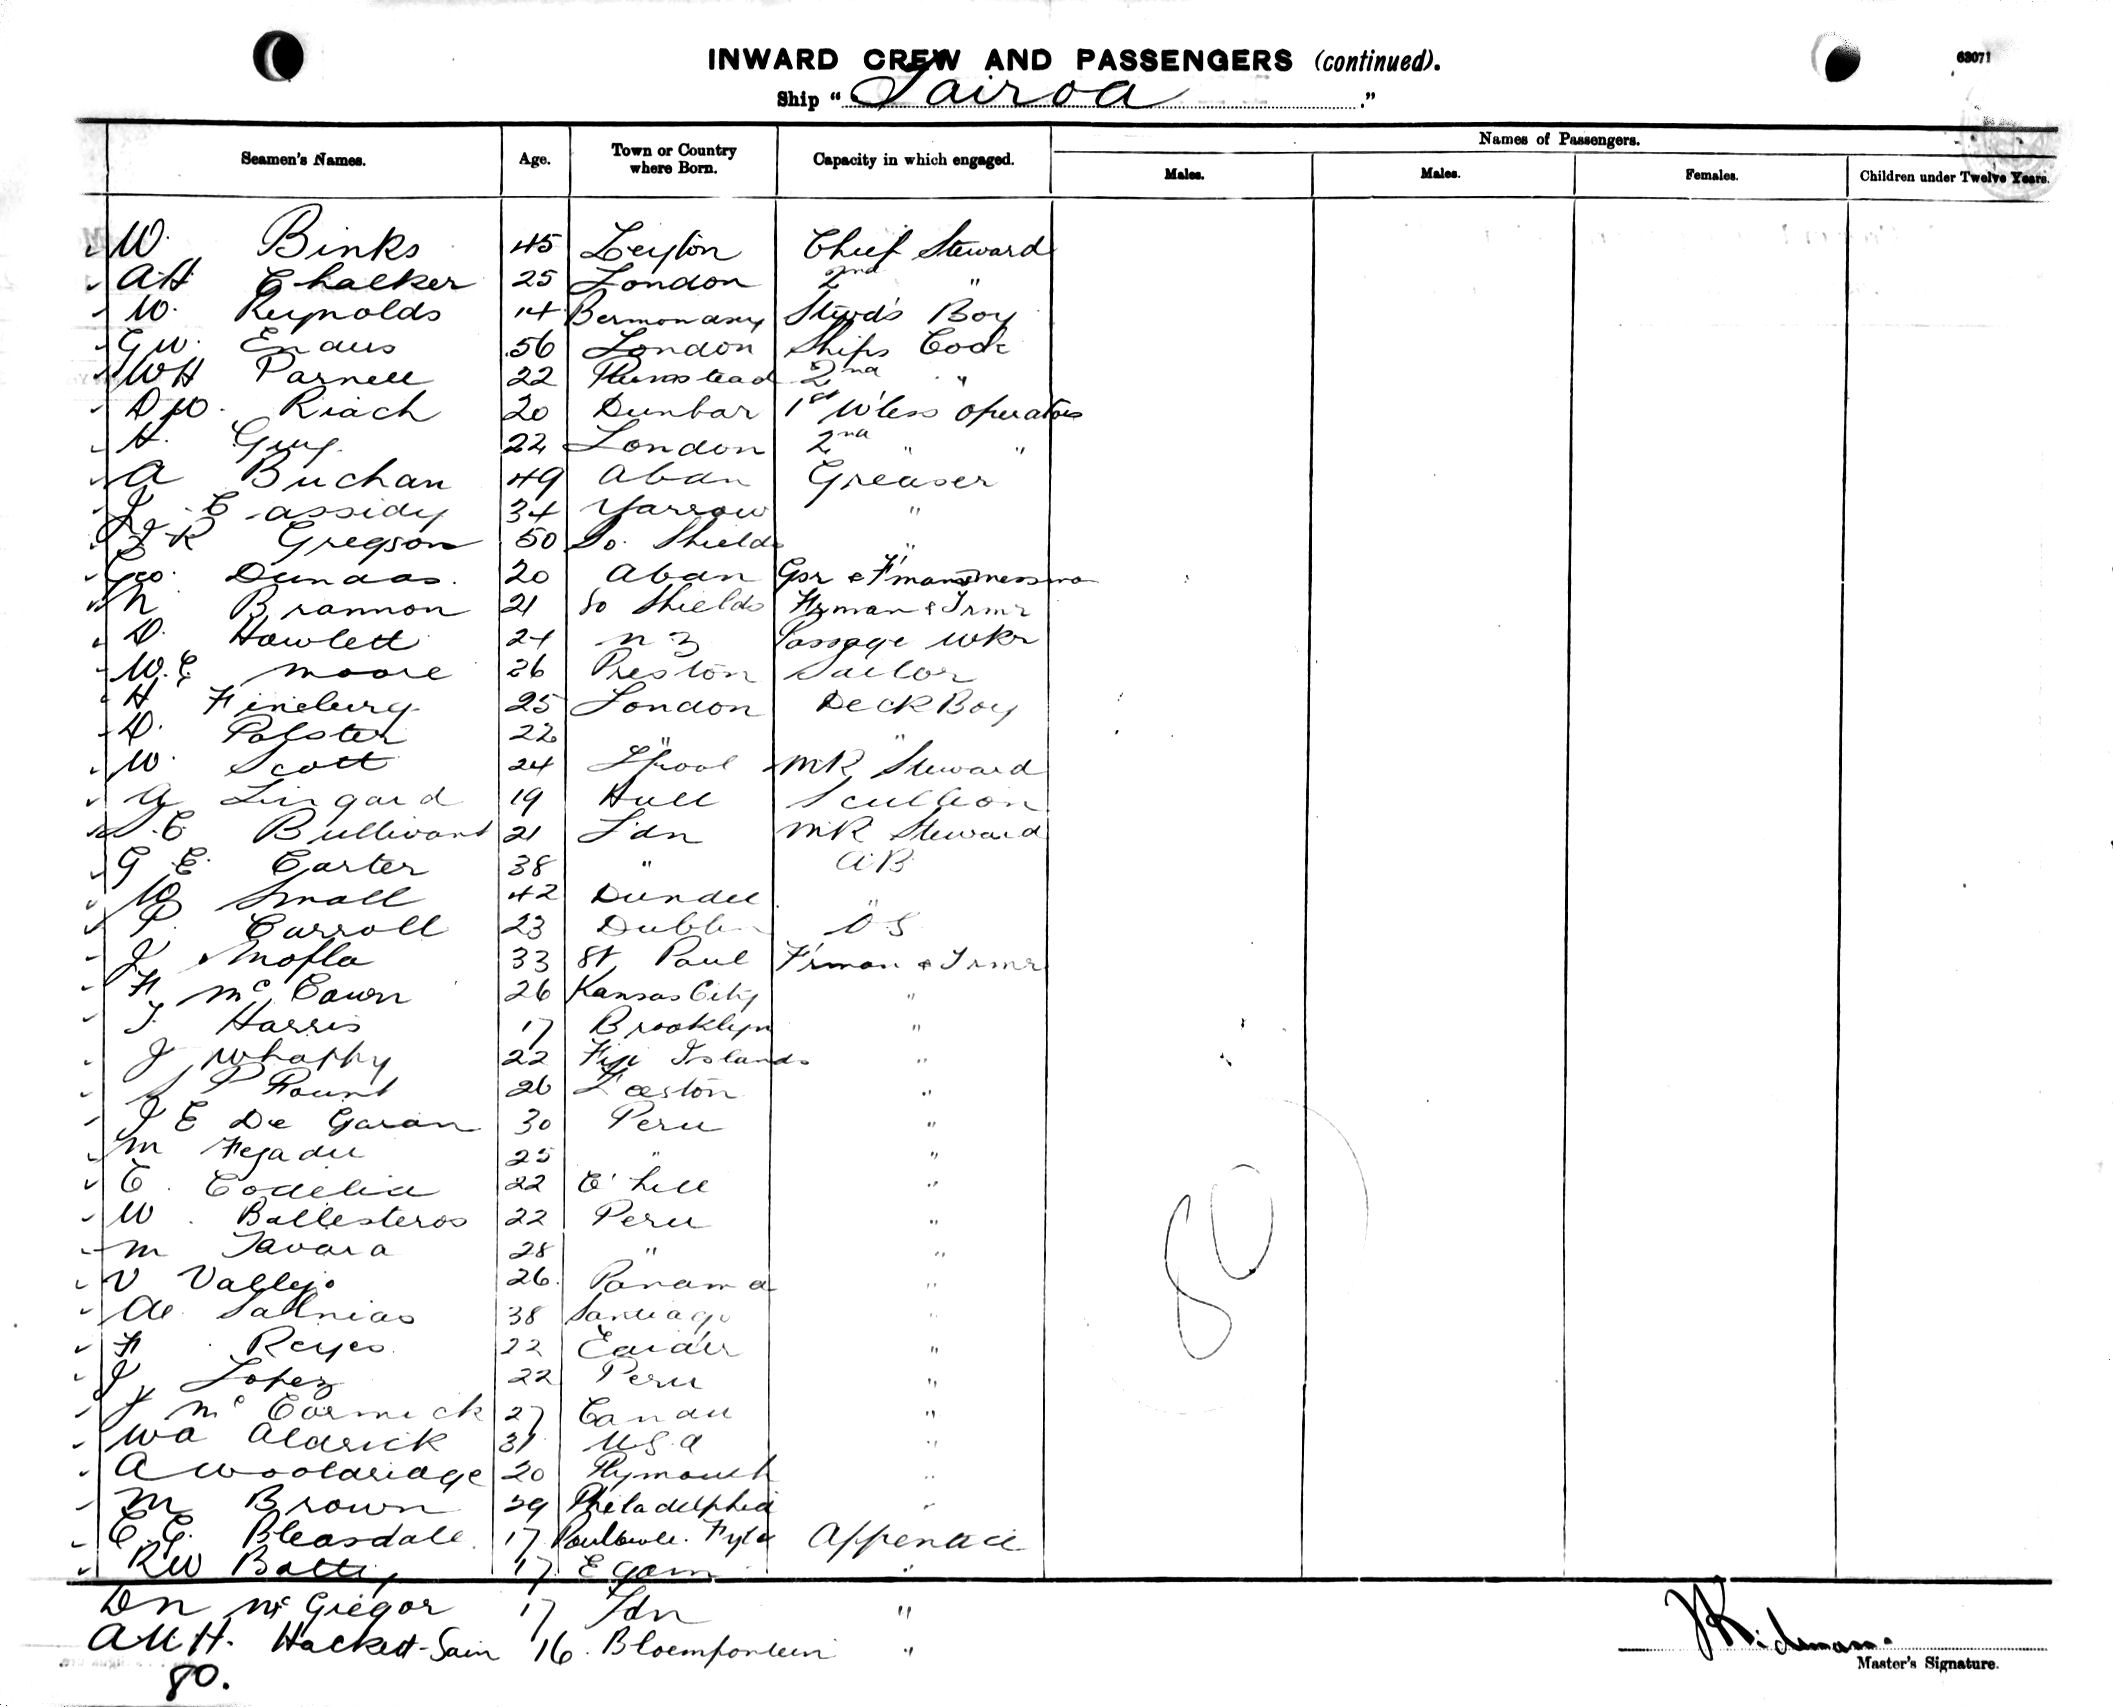 INWARD CREW AND PASSENGERS (continued).
63071
Ship "Tairoa."
Seamen's Names. Age. Town or Country where Born. Capacity in which engaged. Names of Passengers.
Males. Males. Females. Children under Twelve Years.
W. Binks 45 Leyton Chief Steward
AH Chalker 25 London 2nd "
W. Reynolds 14 Bermondsey Stwd's Boy
G W. 56 London Ships Cook
WH Parnell 22 Plumstead 2nd "
D W. Riach 20 Dunbar 1st W'less operator
H. Guy 22 London 2nd " "
A Buchan 49 Abdn Greaser
J Cassidy 34 Yarrow "
J R Gregson 50 So. Shields "
Geo. Dundas. 20 Abdn Gsr & F'mans messman
N Brannon 21 So Shields Frman & Trmr
D. Howlett 24 N Z Passage Wkr
W. E Moore 26 Preston Sailor
H Fineburg 25 London Deck Boy
D. Polster 22 " "
W. Scott 24 L'pool MR Steward
A Lingard 19 Hull Scullion
S. C Bullivant 21 Ldn MR Steward
G E. Carter 38 " AB
W Small 42 Dundee "
P. Carroll 23 Dublin OS
J Mofla 33 St Paul F'man & Trmr
F McCown 26 Kansas City "
T. Harris 17 Brooklyn "
J Whappy 22 Fiji Islands "
S P Fount 26 Leeston "
J E De Garan 30 Peru "
M 25 " "
E. Codelia 22 C'hile "
W. Ballesteros 22 Peru "
M Tavara 28 " "
V Vallejo 26. Panama "
Al Salnias 38 Santiago "
F. Reyes. 22 "
J Lopez 22 Peru "
J McCormick 27 Canada "
WA Aldrick 31 U S A "
A Wooldridge 20 Plymouth "
M Brown 29 Philadelphia "
C. C. Bleasdale. 17 Poulton le. Fylde Apprentice
RW Batty 17. "
DN McGregor 17 Ldn "
A M H. Hackett-Sain 16. Bloemfontein "
80.
80
Master's Signature.